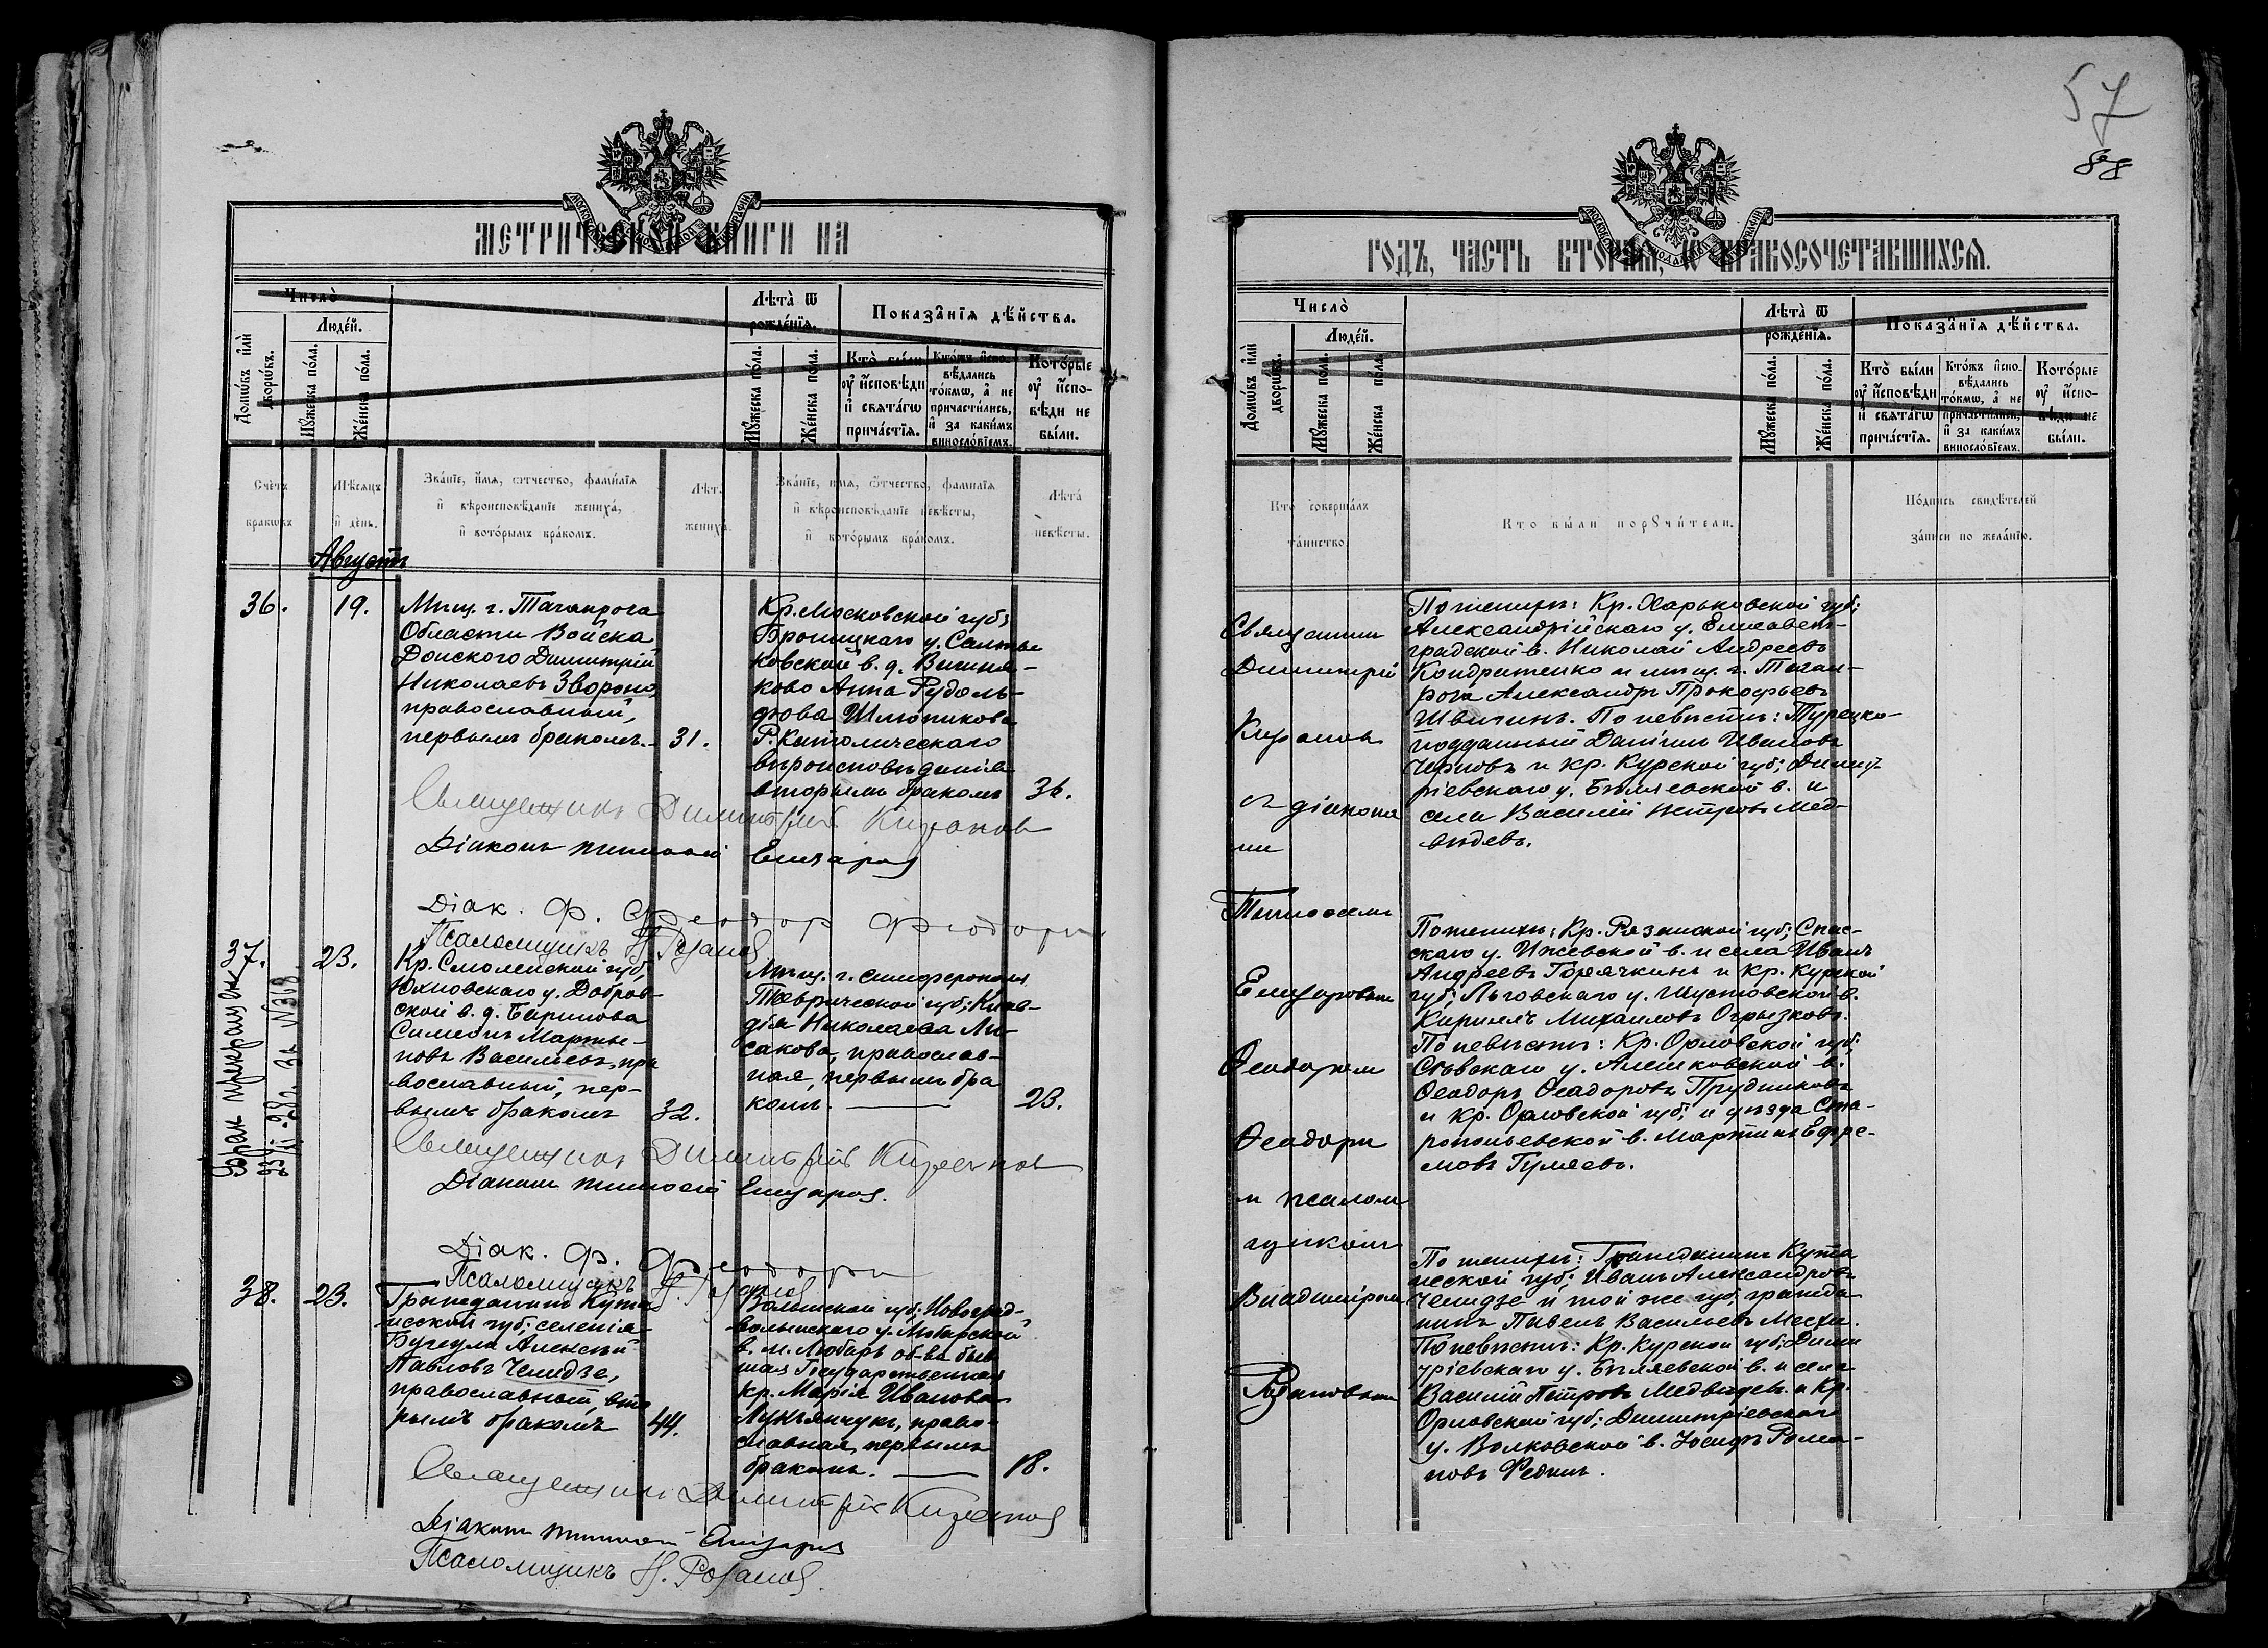 57
88
МЕТРИЧЕСКОЙ КНИГИ НА
Число̀
Домѡвъ и҆лѝ дворѡвъ.
Людей.
Мꙋжеска по́ла.
Же́нска по́ла.
Лѣта̀ ѿ рожде́нїѧ.
Мꙋжеска по́ла.
Же́нска по́ла.
Показа̑нїѧ дѣ́йства.
Кто̀ бы́ли
ᲂу҆ и҆сповѣди
и҆ свята́гѡ
прича́стїѧ.
Кто́жъ и҆спо-
вѣдались
то́кмѡ, а҆ не
причасти́лись,
и҆ за каки́мъ
виносло́вїемъ.
Кото́рые
ᲂу҆ и҆спо-
вѣди не
бы́ли.
Сче́тъ
бракѡвъ
Мѣсяцъ
и҆ де́нь.
Зва́нїе, и҆́мѧ, ѻ҆́тчество, фами́лїѧ
и҆ вѣроисповѣданїе жениха̀,
и҆ кото́рымъ бра́комъ.
Лѣт.
жениха̀.
Зва́нїе, и҆́мѧ, ѻ҆́тчество, фами́лїѧ
и҆ вѣроисповѣданїе невѣсты,
и҆ кото́рымъ бра́комъ.
Лѣта̀
невѣсты.
Августъ
36.
19.
Мѣщ. г. Таганрога
Области Войска
Донского Димитрій
Николаевъ Звороно,
православный,
первымъ бракомъ.
31.
Кр. Московской губ;
Бронницкаго у. Салты
ковской в. д. Вишня-
ково Анна Рудоль-
фова Шлюпикова
Р. Католическаго
вѣроисповѣданія
вторымъ бракомъ
36.
Священникъ Димитрій
Діаконъ Тимоѳей Елизаров
Діак. Ф. Феодори
Псаломщикъ Н. Розанов
37.
23.
Брак прекращен
за № 368.
Кр. Смоленской губ,
Юхновскаго у. Добров-
ской в. д. Баринова
Симеонъ Марты-
новъ Васильевъ, пра
вославный, пер-
вымъ бракомъ
32.
Мѣщ. г. Симферополя
Таврической губ; Клав-
дія Николаева Ли-
сакова, православ-
ная, первымъ бра
комъ.
23.
Священникъ Димитрій
Діаконъ Тимоѳей Елизаров.
Діак. Ф. Феодори
Псаломщикъ Н. Розанов
38.
23.
Гражданинъ Кута
исской губ; селенія
Алексѣй
Павловъ Челидзе,
православный, вто
рымъ бракомъ
44.
Волынской губ; Новоград-
волынскаго у. Любарской
в. м. Любаръ об-ва быв
шая Государственная
кр. Марія Иванова
Лукьянчукъ, право-
славная, первымъ
бракомъ.
18.
Священникъ Димитрій
Діаконъ Тимоѳей Елизаров
Псаломщикъ Н. Розанов.
ГОДЪ, ЧАСТЬ ВТОРАЯ, Ѡ БРАКОСОЧЕТАВШИХСЯ.
Число̀
Домѡвъ и҆лѝ дворѡвъ.
Людей.
Мꙋжеска по́ла.
Же́нска по́ла.
Лѣта̀ ѿ рожде́нїѧ.
Мꙋжеска по́ла.
Же́нска по́ла.
Показа̑нїѧ дѣ́йства.
Кто̀ бы́ли
ᲂу҆ и҆сповѣди
и҆ свята́гѡ
прича́стїѧ.
Кто́жъ и҆спо-
вѣдались
то́кмѡ, а҆ не
причасти́лись,
и҆ за каки́мъ
виносло́вїемъ.
Кото́рые
ᲂу҆ и҆спо-
вѣди не
бы́ли.
Кто̀ соверша́лъ
та́инство.
Кто̀ бы́ли порꙋчи́тели.
По́дпись свидѣтелей
за́писи по жела́нїю.
Священникъ
Димитрій
съ діакона
ми
Тимоѳеемъ
Елизаровымъ
Ѳеодоромъ
Ѳеодори
и псалом
щикомъ
Владиміромъ
Розановымъ
По женихѣ: Кр. Харьковской губ;
Александрійскаго у. Елисавет-
градской в. Николай Андреевъ
Кондратенко и мѣщ. г. Таган-
рога Александръ Прокофьевъ
Швыгинъ. По невѣстѣ: Турецко-
подданный Даніилъ Ивановъ
Черновъ и кр. Курской губ; Димит-
ріевскаго у. Бѣляевской в. и
села Василій Петровъ Мед-
вѣдевъ.
По женихѣ: Кр. Рязанской губ; Спас-
скаго у. Ижевской в. и села Иванъ
Андреевъ Горячкинъ и кр. Курской
губ; Льговскаго у. Шустовской в.
Кириллъ Михаиловъ Огрызковъ.
По невѣстѣ: Кр. Орловской губ;
Сѣвскаго у. Алешковской в.
Ѳеодоръ Ѳеодоровъ Прудниковъ
и кр. Орловской губ; и уѣзда Ста-
в. Мартинъ Ефре-
мовъ Гуляевъ.
По женихѣ: Гражданинъ Кута
исской губ; Иванъ Александровъ
Челидзе и той же губ; гражда
нинъ Павелъ Васильевъ Месхи.
По невѣстѣ: Кр. Курской губ; Дими
тріевскаго у. Бѣляевской в. и села
Василій Петровъ Медвѣдевъ и Кр.
Орловской губ; Димитріевскаго
у. Волковской в. Іосифъ Рома-
новъ Рединъ.